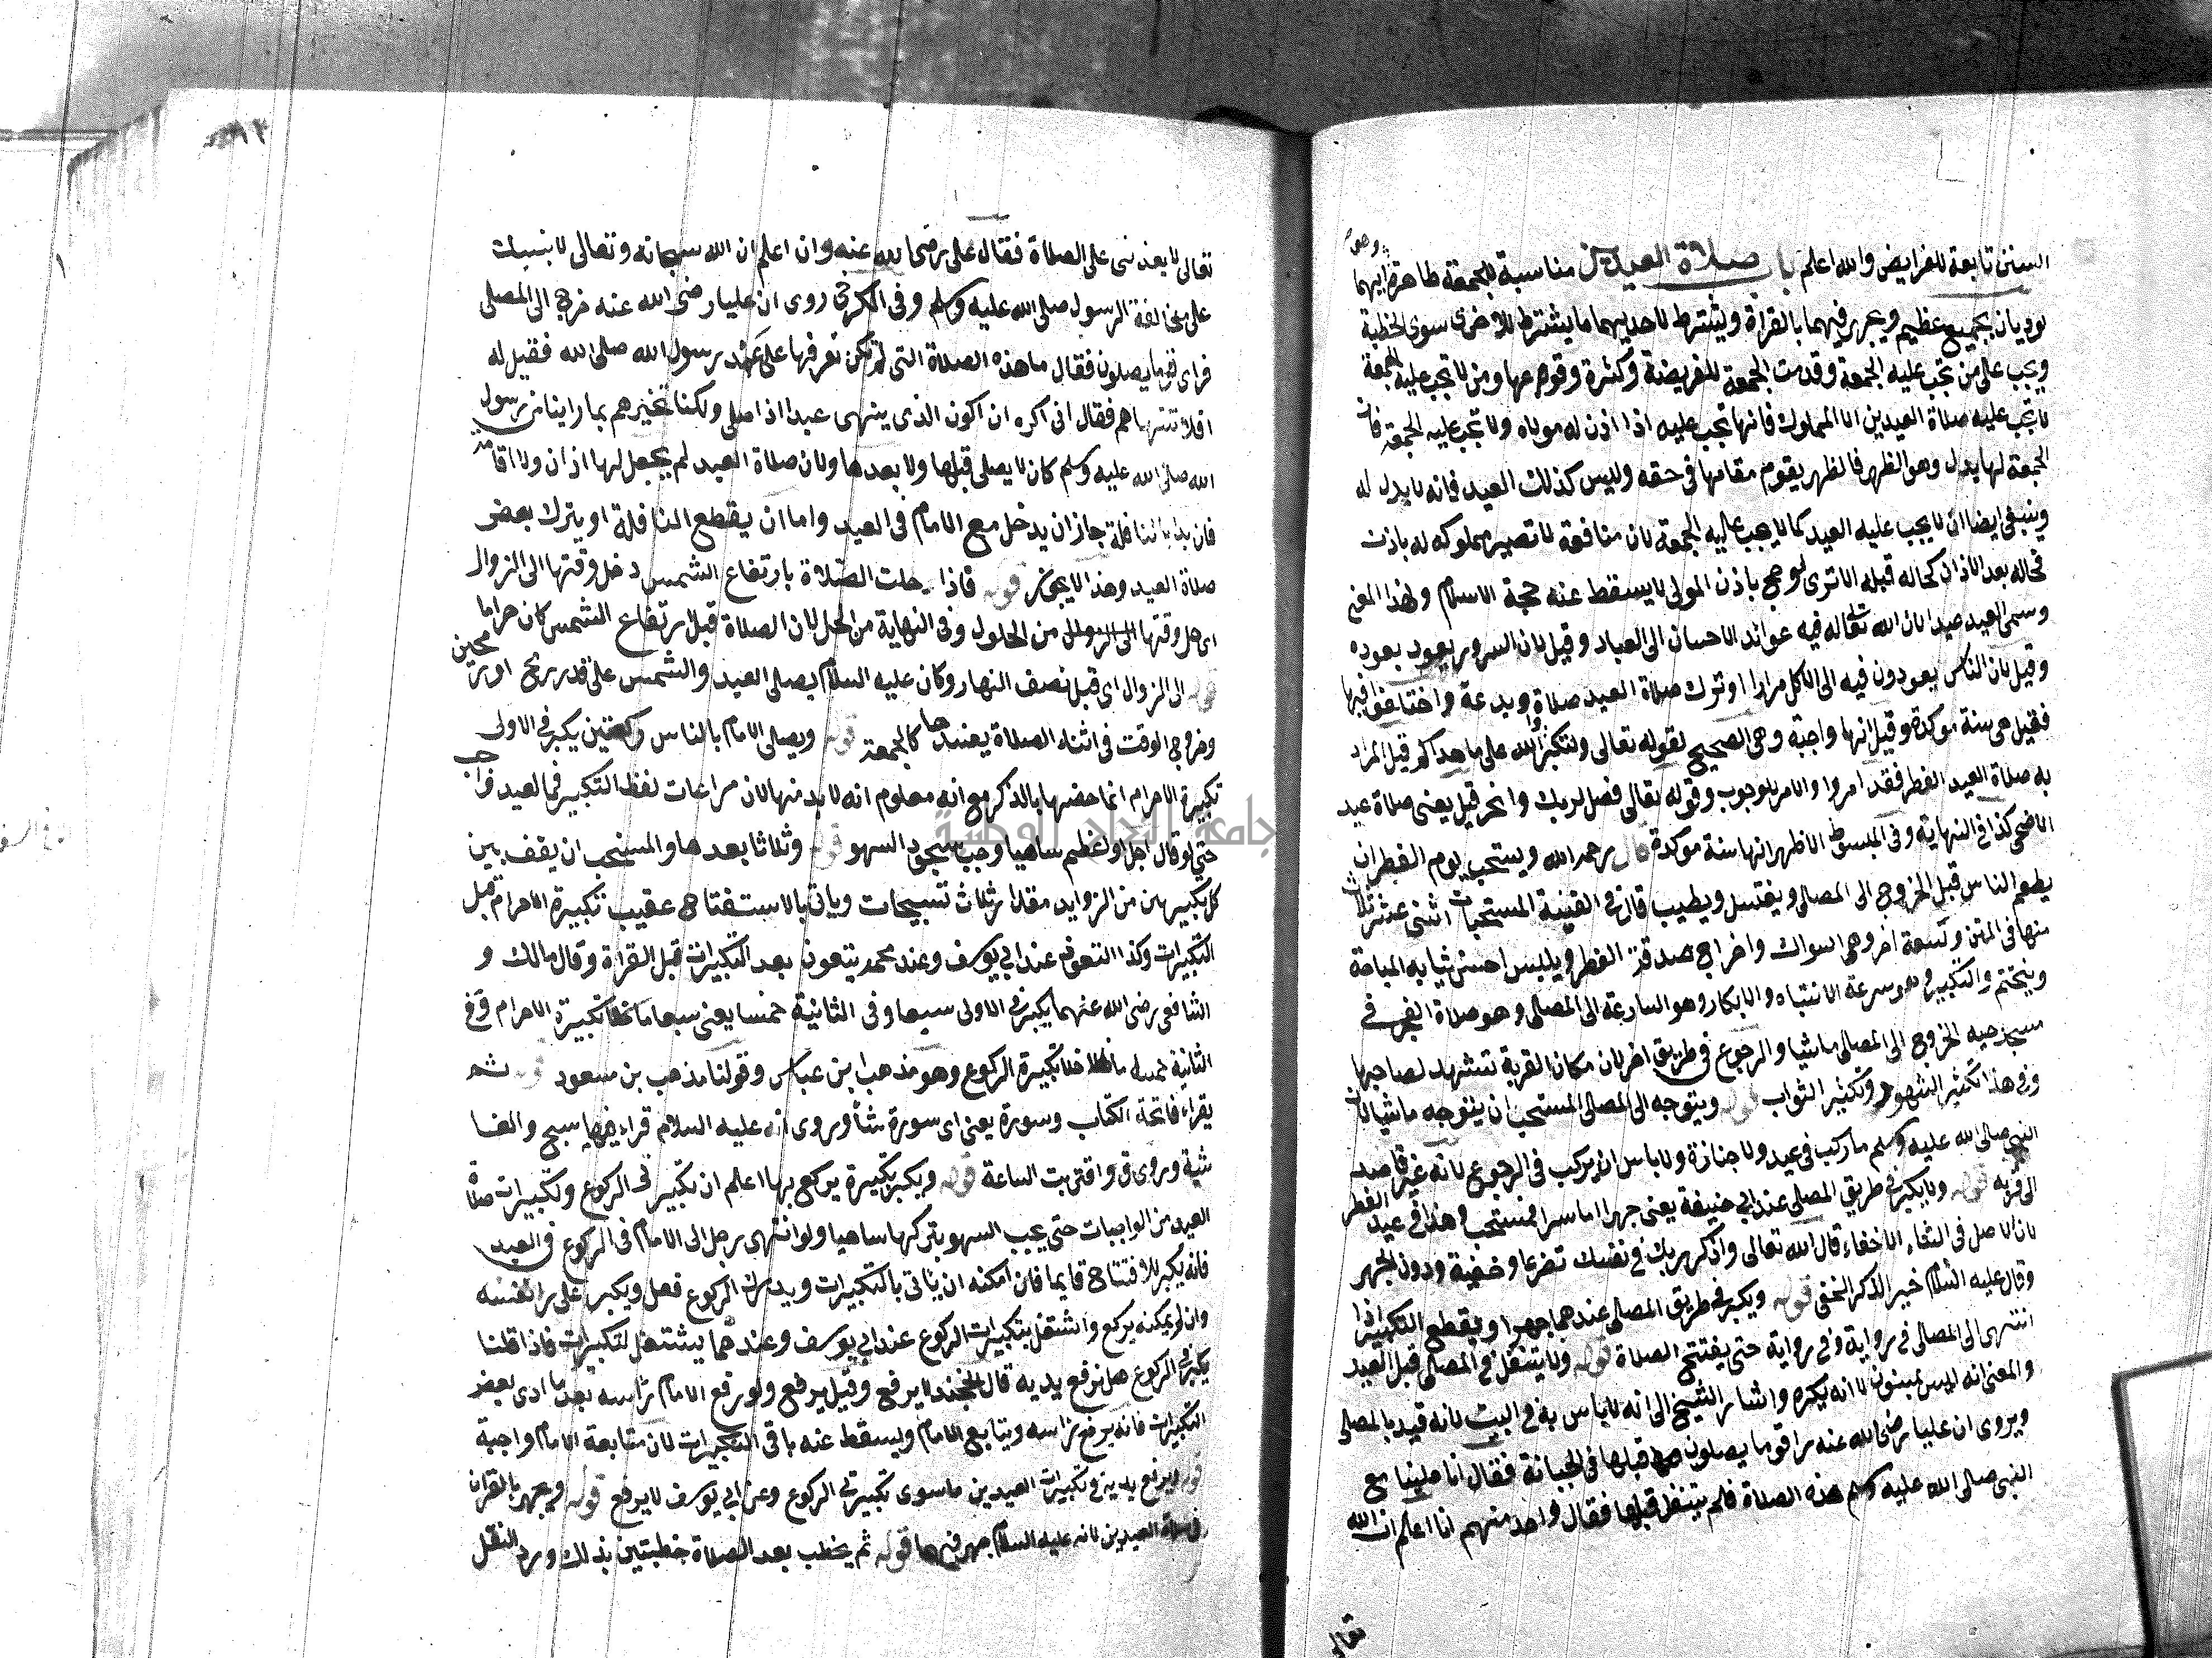 السنن تابعة للفرايض والله اعلم باب صلاة العيدين مناسبة للجمعة ظاهرة وهو انهما
يوديان بجمع عظيم ويجهر فيهما بالقراة ويشترط لاحديهما ما يشترط للاخرى سوى الخطبة
ويجب على من تجب عليه الجمعة وقدمت الجمعة للفريضة وكثرة وقوعها ومن لا تجب عليه الجمعة
لا تجب عليه صلاة العيدين الا المملوك فانها تجب عليه اذا اذن له مولاه ولا تجب عليه الجمعة فان
الجمعة لها بدل وهو الظهر فالظهر يقوم مقامها في حقه وليس كذلك العيد فانه لا بدل له
وينبغي ايضا ان لا يجب عليه العيد كما لا يجب عليه الجمعة لان منافعه لا تصير مملوكه له باذن
فحاله بعد الاذان كحاله قبله الا ترى لو حج باذن المولى لا يسقط عنه حجة الاسلام ولهذا المعنى
وسمى العيد عيدا لان الله تعالى له فيه عوائد الاحسان الى العباد وقيل لان السرور يعود بعوده
وقيل لان الناس يعودون فيه الى الاكل مرارا وترك صلاة العيد ضلالة وبدعة واختلفوا فيها
فقيل هي سنة موكدة وقيل انها واجبة وهي الصحيح لقوله تعالى ولتكبروا الله على ما هداكم قيل المراد
به صلاة العيد الفطر فقد امروا والامر للوجوب وقوله تعالى فصل لربك وانحر قيل يعني صلاة عيد
الاضحى كذا في النهاية وفي المبسوط الاظهر انها سنة موكدة قال رحمه الله ويستحب يوم الفطر ان
يطعم الناس قبل الخروج الى المصلى ويغتسل ويطيب قال في القنية المستحبات اثنى عشر ثلاث
منها في المتن وتسعة اخر وهي السواك واخراج صدقة الفطر ويلبس احسن ثيابه المباحة
ويتختم والتكبير وهو سرعة الانتباه والابكار وهو المسارعة الى المصلى وهو صلاة الفجر في
مسجد حيه الخروج الى المصلى ماشيا والرجوع في طريق اخر لان مكان القربة تشهد لصاحبها
وفي هذا تكثير الشهود وتكثير الثواب قوله ويتوجه الى المصلى المستحب ان يتوجه ماشيا لان
النبي صلى الله عليه وسلم ما ركب في عيد ولا جنازة ولا باس ان يركب في الرجوع لانه غير قاصد
الى قربه قوله ولا يكبر في طريق المصلى عند ابي حنيفة يعني جهرا اما سرا فمستحب وهذا في عيد الفطر
لان الاصل في الثناء الاخفاء قال الله تعالى واذكر ربك في نفسك تضرعا وخيفة ودون الجهر
وقال عليه السلام خير الذكر الخفي قوله ويكبر في طريق المصلى عندهما جهرا ويقطع التكبير اذا
انتهى الى المصلى في رواية وفي رواية حتى يفتتح الصلاة قوله ولا يتنفل في المصلى قبل العيد
والمعنى انه ليس بمسنون لا انه يكره واشار الشيخ الى انه لا باس به في البيت لانه قيد بالمصلى
ويروى ان عليا رضي الله عنه راى قوما يصلون قبلها في الجبانة فقال انا صلينا مع
النبي صلى الله عليه وسلم هذه الصلاة فلم يتنفل قبلها فقال واحد منهم انا اعلم ان الله
تعالى
تعالى لا يعذبني على الصلاة فقال على رضي الله عنه وان اعلم ان الله سبحانه وتعالى لا يثيبك
على مخالفة الرسول صلى الله عليه وسلم وفي الكرخي روى ان عليا رضي الله عنه خرج الى المصلى
فراى قوما يصلون فقال ما هذه الصلاة التي لم تكن نعرفها على عهد رسول الله صلى الله فقيل له
افلا تنهاهم فقال اني اكره ان اكون الذي ينهى عبدا اذا صلى ولكنا نخبرهم بما راينا من رسول
الله صلى الله عليه وسلم كان لا يصلى قبلها ولا بعدها ولان صلاة العيد لم يجعل لها اذان ولا اقامة
فان بدا بالنافلة جاز ان يدخل مع الامام في العيد واما ان يقطع النافلة او يترك بعض
صلاة العيد وهذا لا يجوز قوله فاذا حلت الصلاة بارتفاع الشمس دخل وقتها الى الزوال
اى حل وقتها من الحلول وفي النهاية من الحل لان الصلاة قبل ارتفاع الشمس كان حراما
قوله الى الزوال اى قبل نصف النهار وكان عليه السلام يصلى العيد والشمس على قدر رمح او رمحين
وخروج الوقت في اثناء الصلاة يفسدها كالجمعة قوله ويصلى الامام بالناس ركعتين يكبر في الاولى
تكبيرة الاحرام انما خصها بالذكر مع انه معلوم انه لا بد منها لان مراعات لفظ التكبير في العيد واجب
حتى لو قال اجل او اعظم ساهيا وجب سجود السهو قوله وثلاثا بعدها والمستحب ان يقف بين
كل تكبيرتين من الزوايد مقدار ثلاث تسبيحات وياتى بالاستفتاح عقيب تكبيرة الاحرام قبل
التكبيرات وكذا التعوذ عند ابي يوسف وعند محمد يتعوذ بعد التكبيرات قبل القراة وقال مالك و
الشافعي رضي الله عنهما يكبر في الاولى سبعا وفي الثانية خمسا يعني سبعا ما خلا تكبيرة الاحرام وفي
الثانية خمسا ما خلا تكبيرة الركوع وهو مذهب ابن عباس وقولنا مذهب بن مسعود قوله ثم
يقراء فاتحة الكتاب وسورة يعني اى سورة شأ وروى انه عليه السلام قراء فيها سبح والغا
شية وروى ق واقتربت الساعة قوله ويكبر تكبيرة يركع بها اعلم ان تكبير في الركوع وتكبيرات صلاة
العيد من الواجبات حتى يجب السهو بتركها ساهيا ولو انتهى رجل الى الامام في الركوع في العيد
فانه يكبر للافتتاح قايما فان امكنه ان ياتى بالتكبيرات ويدرك الركوع فعل ويكبر على راى نفسه
وان لم يمكنه يركع واشتغل بتكبيرات الركوع عند ابي يوسف وعندهما يشتغل لتكبيرات فاذا قلنا
يكبر في الركوع هل يرفع يديه قال الخجندي لا يرفع وقيل يرفع ولو رفع الامام راسه بعد ما ادى بعض
التكبيرات فانه يرفع راسه ويتابع الامام ويسقط عنه باقى التكبيرات لان متابعة الامام واجبة
قوله ويرفع يديه في تكبيرات العيدين ما سوى تكبيرتي الركوع وعن ابي يوسف لا يرفع قوله ويجهر بالقران
في صلاة العيدين لانه عليه السلام جهر فيهما قوله ثم يخطب بعد الصلاة خطبتين بذلك ورد النقل
جامعة النجاح الوطنية